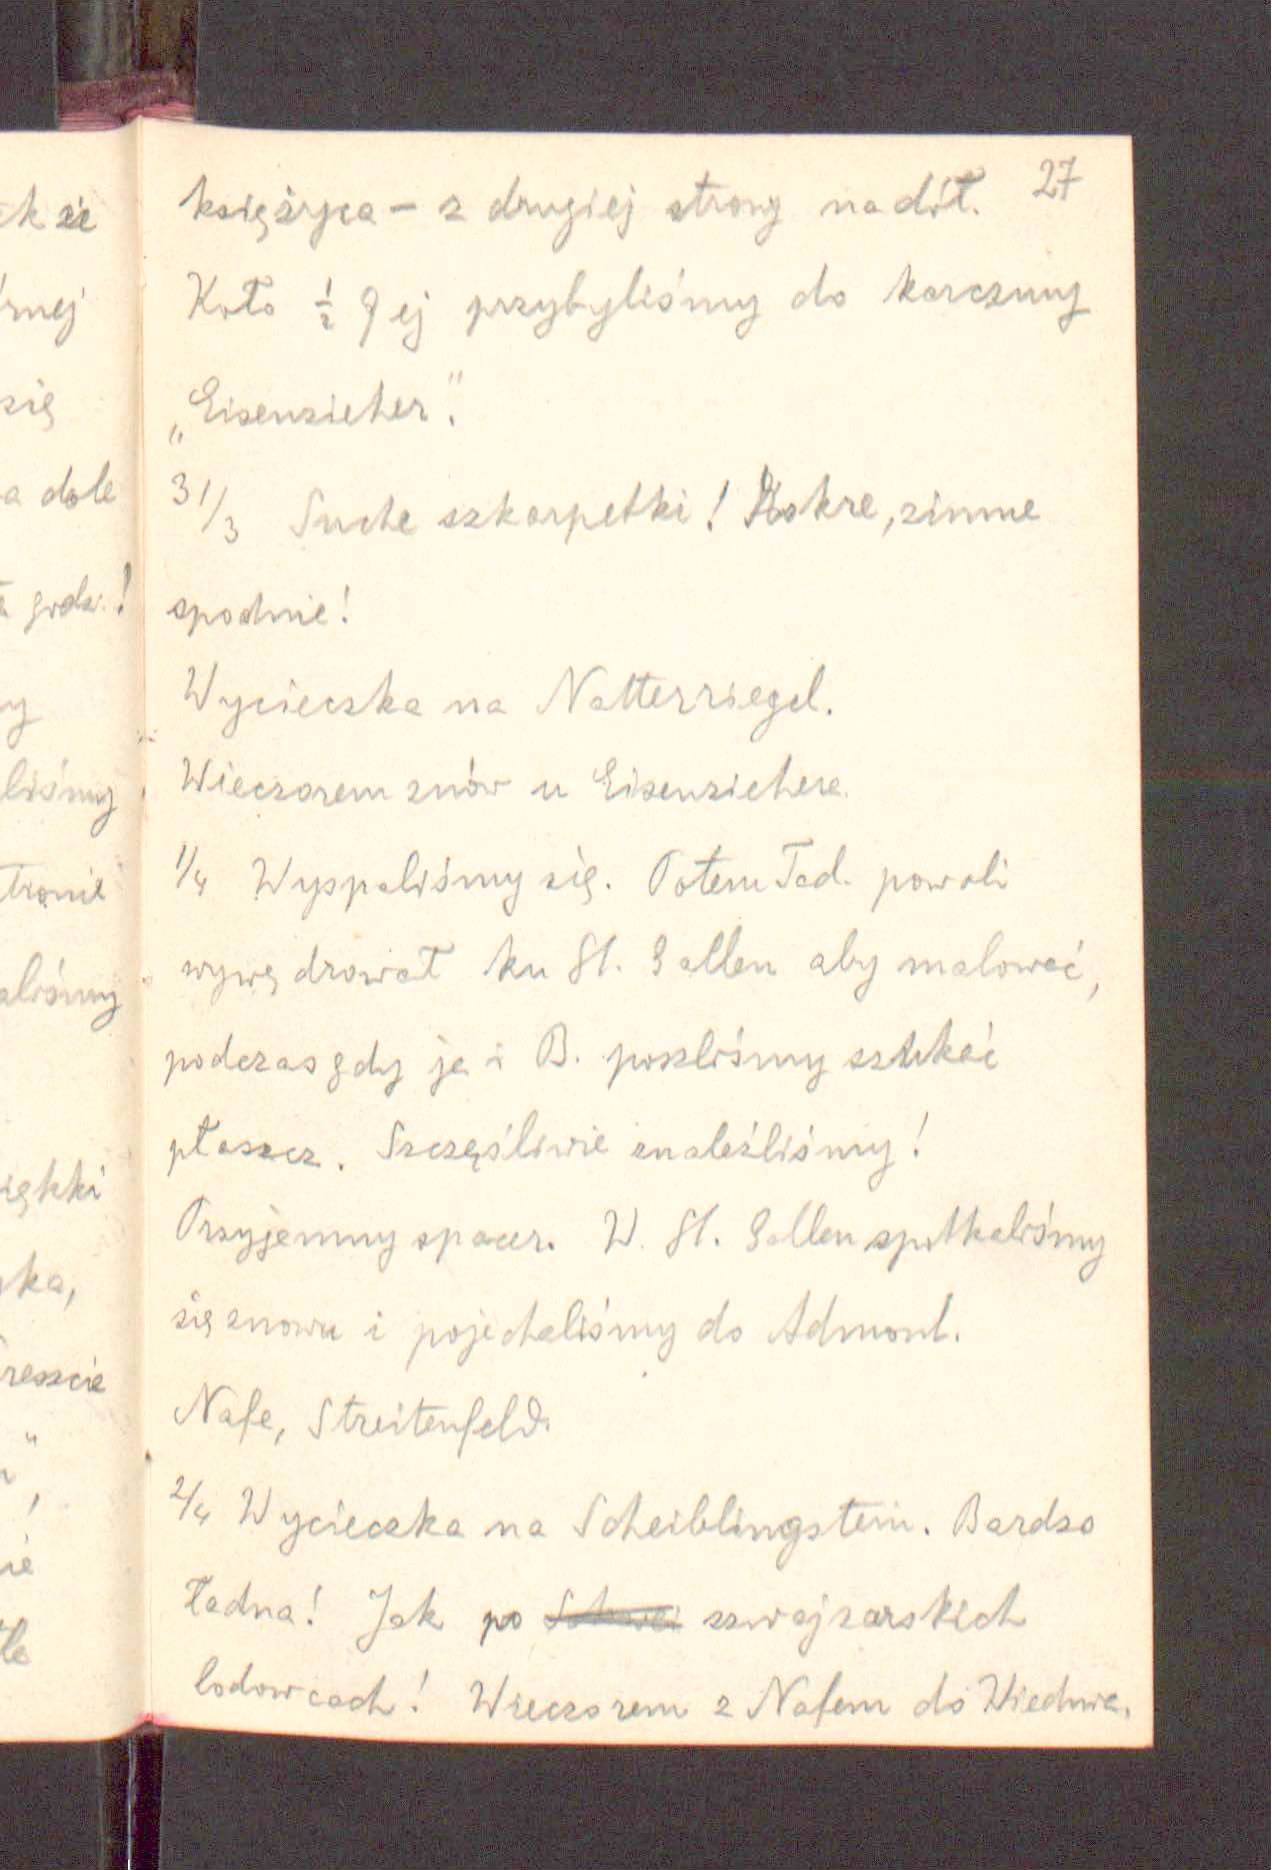 27
księżyca – z drugiej strony na dół.
Koło ½ 9ej przybyliśmy do karczmy
„Eisenzieher".
31/3 Suche szkarpetki! Mokre, zimne
spodnie!
Wycieczka na Natterriegel.
Wieczorem znów u Eisenziehera.
1/4 Wyspaliśmy się. Potem Tad. powoli
wywędrował ku St. Gallen aby malować,
podczas gdy ja i B. poszliśmy szukać
płaszcz. Szczęśliwie znaleźliśmy!
Przyjemny spacer. W. St. Gallen spotkaliśmy
się znowu i pojechaliśmy do Admont.
Nafe, Streitenfeld.
2/4 Wycieczka na Scheiblingstein. Bardzo
ładna! Jak po szwajzarskich
lodowcach! Wieczorem z Nafem do Wiednia.
ek się
órnej
się
a dole
godz.!
y
liśmy
tronie
aliśmy
iękki
yka,
reszcie
"
ie
tle